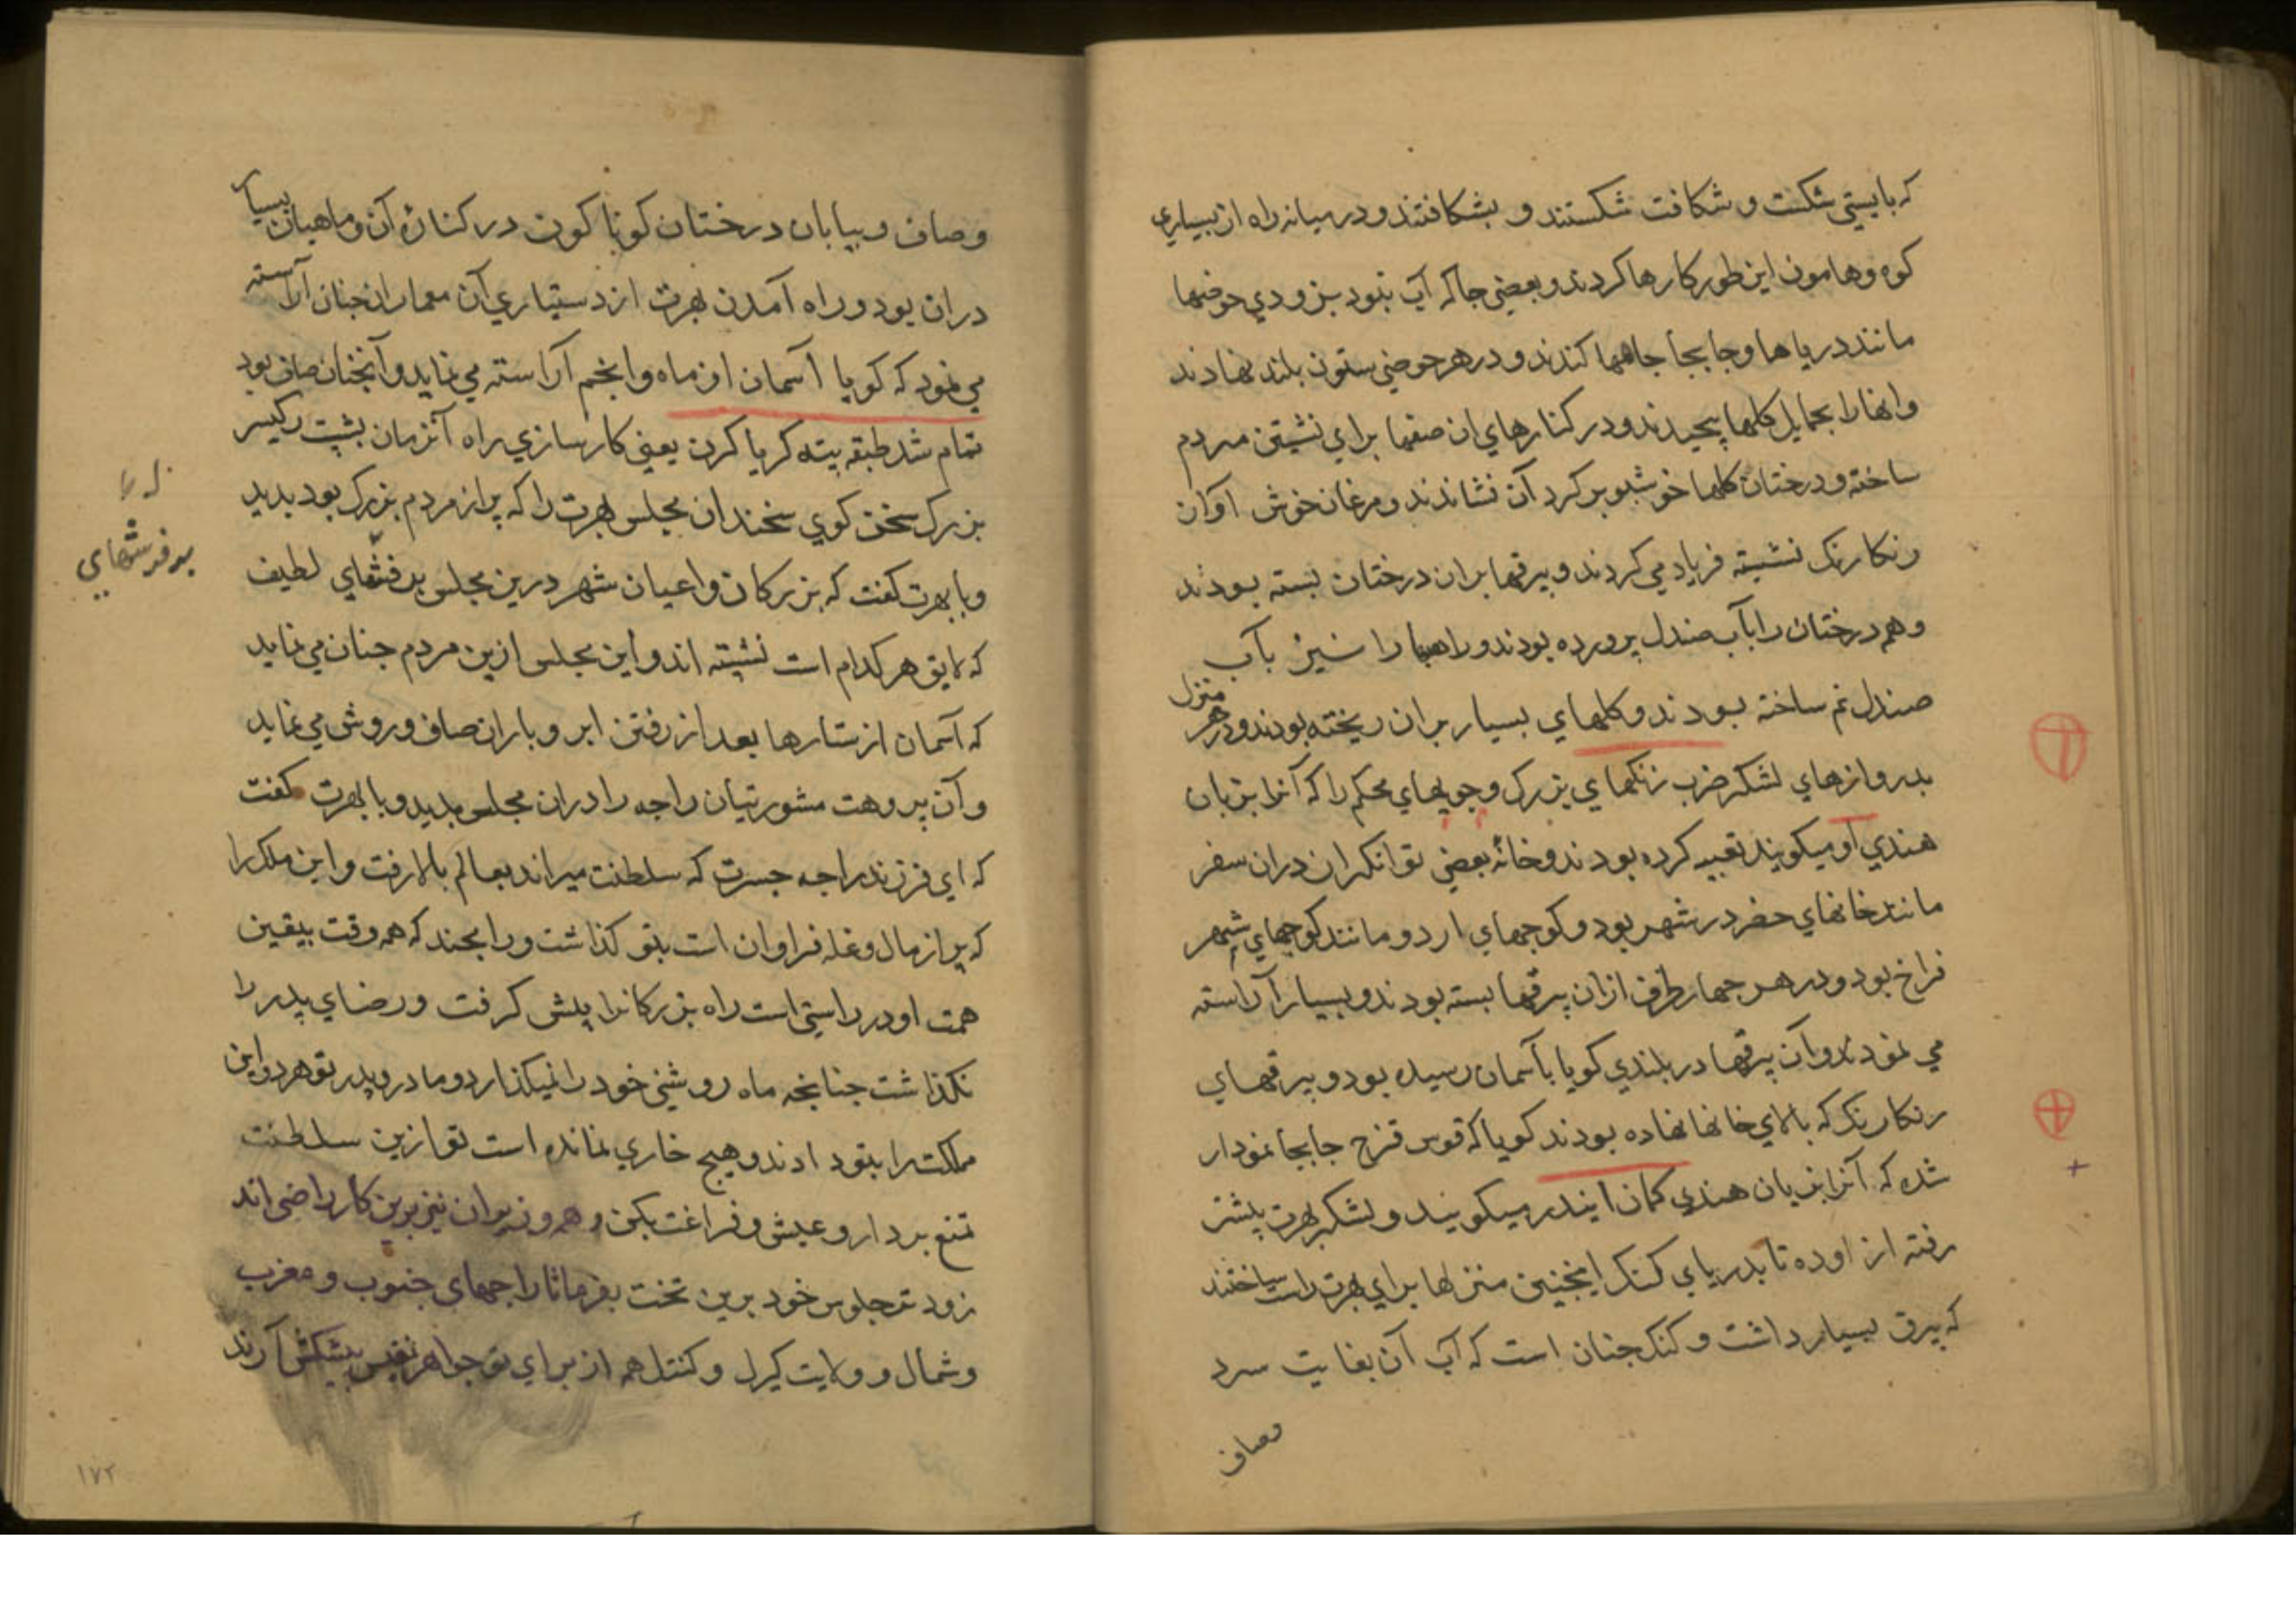 که بایستی شکست و شکافت شکستند و بشکافتند و در میانه راه از بسیاری
کوه و هامون این طور کارها کردند و بعضی جا که آب نبود بزودی حوضها
مانند دریاها و جابجا چاهها کندند و در هر حوضی ستون بلند نهادند
وانها را بحمایل کلها پیچیدند و در کنارهای ان صفها برای نشیتن مردم
ساخته و درختان کلها خوشبو بر کرد آن نشاندند و مرغان خوش اوان
رنکارنک نشیته فریاد می کردند و بیرقها بران درختان بسته بودند
و هم درختان را بآب صندل پرورده بودند و راهها را نیز بآب
صندل نم ساخته بودند و کلهای بسیار بران ریخته بودند و در هر منزل
بدروازهای لشکر ضرب زنکهای بزرک و چوبهای محکم را که آنرا بزبان
هندی او میکویند تعبیه کرده بودند و خانه بعضی توانکران دران سفر
مانند خانهای حضر در شهر بود و کوچهای اردو مانند کوچهای شهر
فراخ بود و در هر جهار طرف ازان بیرقها بسته بودند و بسیار آراسته
می نمودند و آن بیرقها در بلندی کویا بآسمان رسیده بود و بیرقهای
رنکارنک که بالای خانها نهاده بودند کویا که قوس قزح جابجا نمودار
شده که آنرا بزبان هندی کمان ایندر میکویند و لشکر بهرت پیشتر
رفته از اوده تا بدریای کنک اینچنین منزلها برای بهرت راست ساختند
که بیرق بسیار داشت و کنک جنان است که آب آن بغایت سرد
وصاف
وصاف و بیابان درختان کوناکون در کناره آن و ماهیان بسیار
دران بود و راه آمدن بهرت از دستیاری آن معماران جنان آراسته
می نمود که کویا آسمان از ماه و انجم آراسته می نماید و آنچنان صاف بود
تمام شد طبقه پیته کریا کرن یعنی کارسازی راه آنزمان بشپت رکیسر
بزرک سخن کوی سخندان مجلس بهرت را که پر از مردم بزرک بود بدید
و با بهرت کفت که بزرکان و اعیان شهر درین مجلس بر فرشهای لطیف
که لایق هر کدام است نشیته اند و این مجلس ازین مردم جنان می نماید
که آسمان از ستارها بعد از رفتن ابر و باران صاف و روشن می نماید
و آن پروهت مشورتیان راجه را دران مجلس بدید و با بهرت کفت
که ای فرزند راجه جسرت که سلطنت میراند بعالم بالا رفت و این ملک را
که پر از مال و غله فراوان است بتو کذاشت و رامچند که همه وقت بیقین
همت او در راستی است راه بزرکانرا پیش کرفت و رضای پدر را
نکذاشت جنانچه ماه روشنی خود را نمیکذارد و مادر و پدر تو هر دو این
مملکت را بتو دادند و هیچ خاری نمانده است تو ازین سلطنت
تمتع بردار و عیش و فراغت بکن و همه وزیران نیز برین کار راضی اند
زودتر جلوس خود برین تخت بفرما تا راجهای جنوب و مغرب
و شمال و ولایت کیرل و کنتل هم از برای تو جواهر نفیس پیشکش آرند
بر فرشهای
۱۷۲